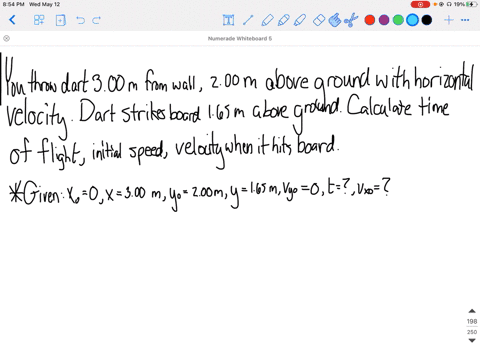 8:54 PM Wed May 12
19%
Numerade Whiteboard 5
You throw dart 3.00 m from wall, 2.00 m above ground with horizontal
velocity. Dart strikes board 1.65 m above ground. Calculate time
of flight, initial speed, velocity when it hits board.
*Given: x₀=0, x=3.00 m, y₀=2.00m, y=1.65 m, Vy₀=0, t=?, Vx₀=?
198
250